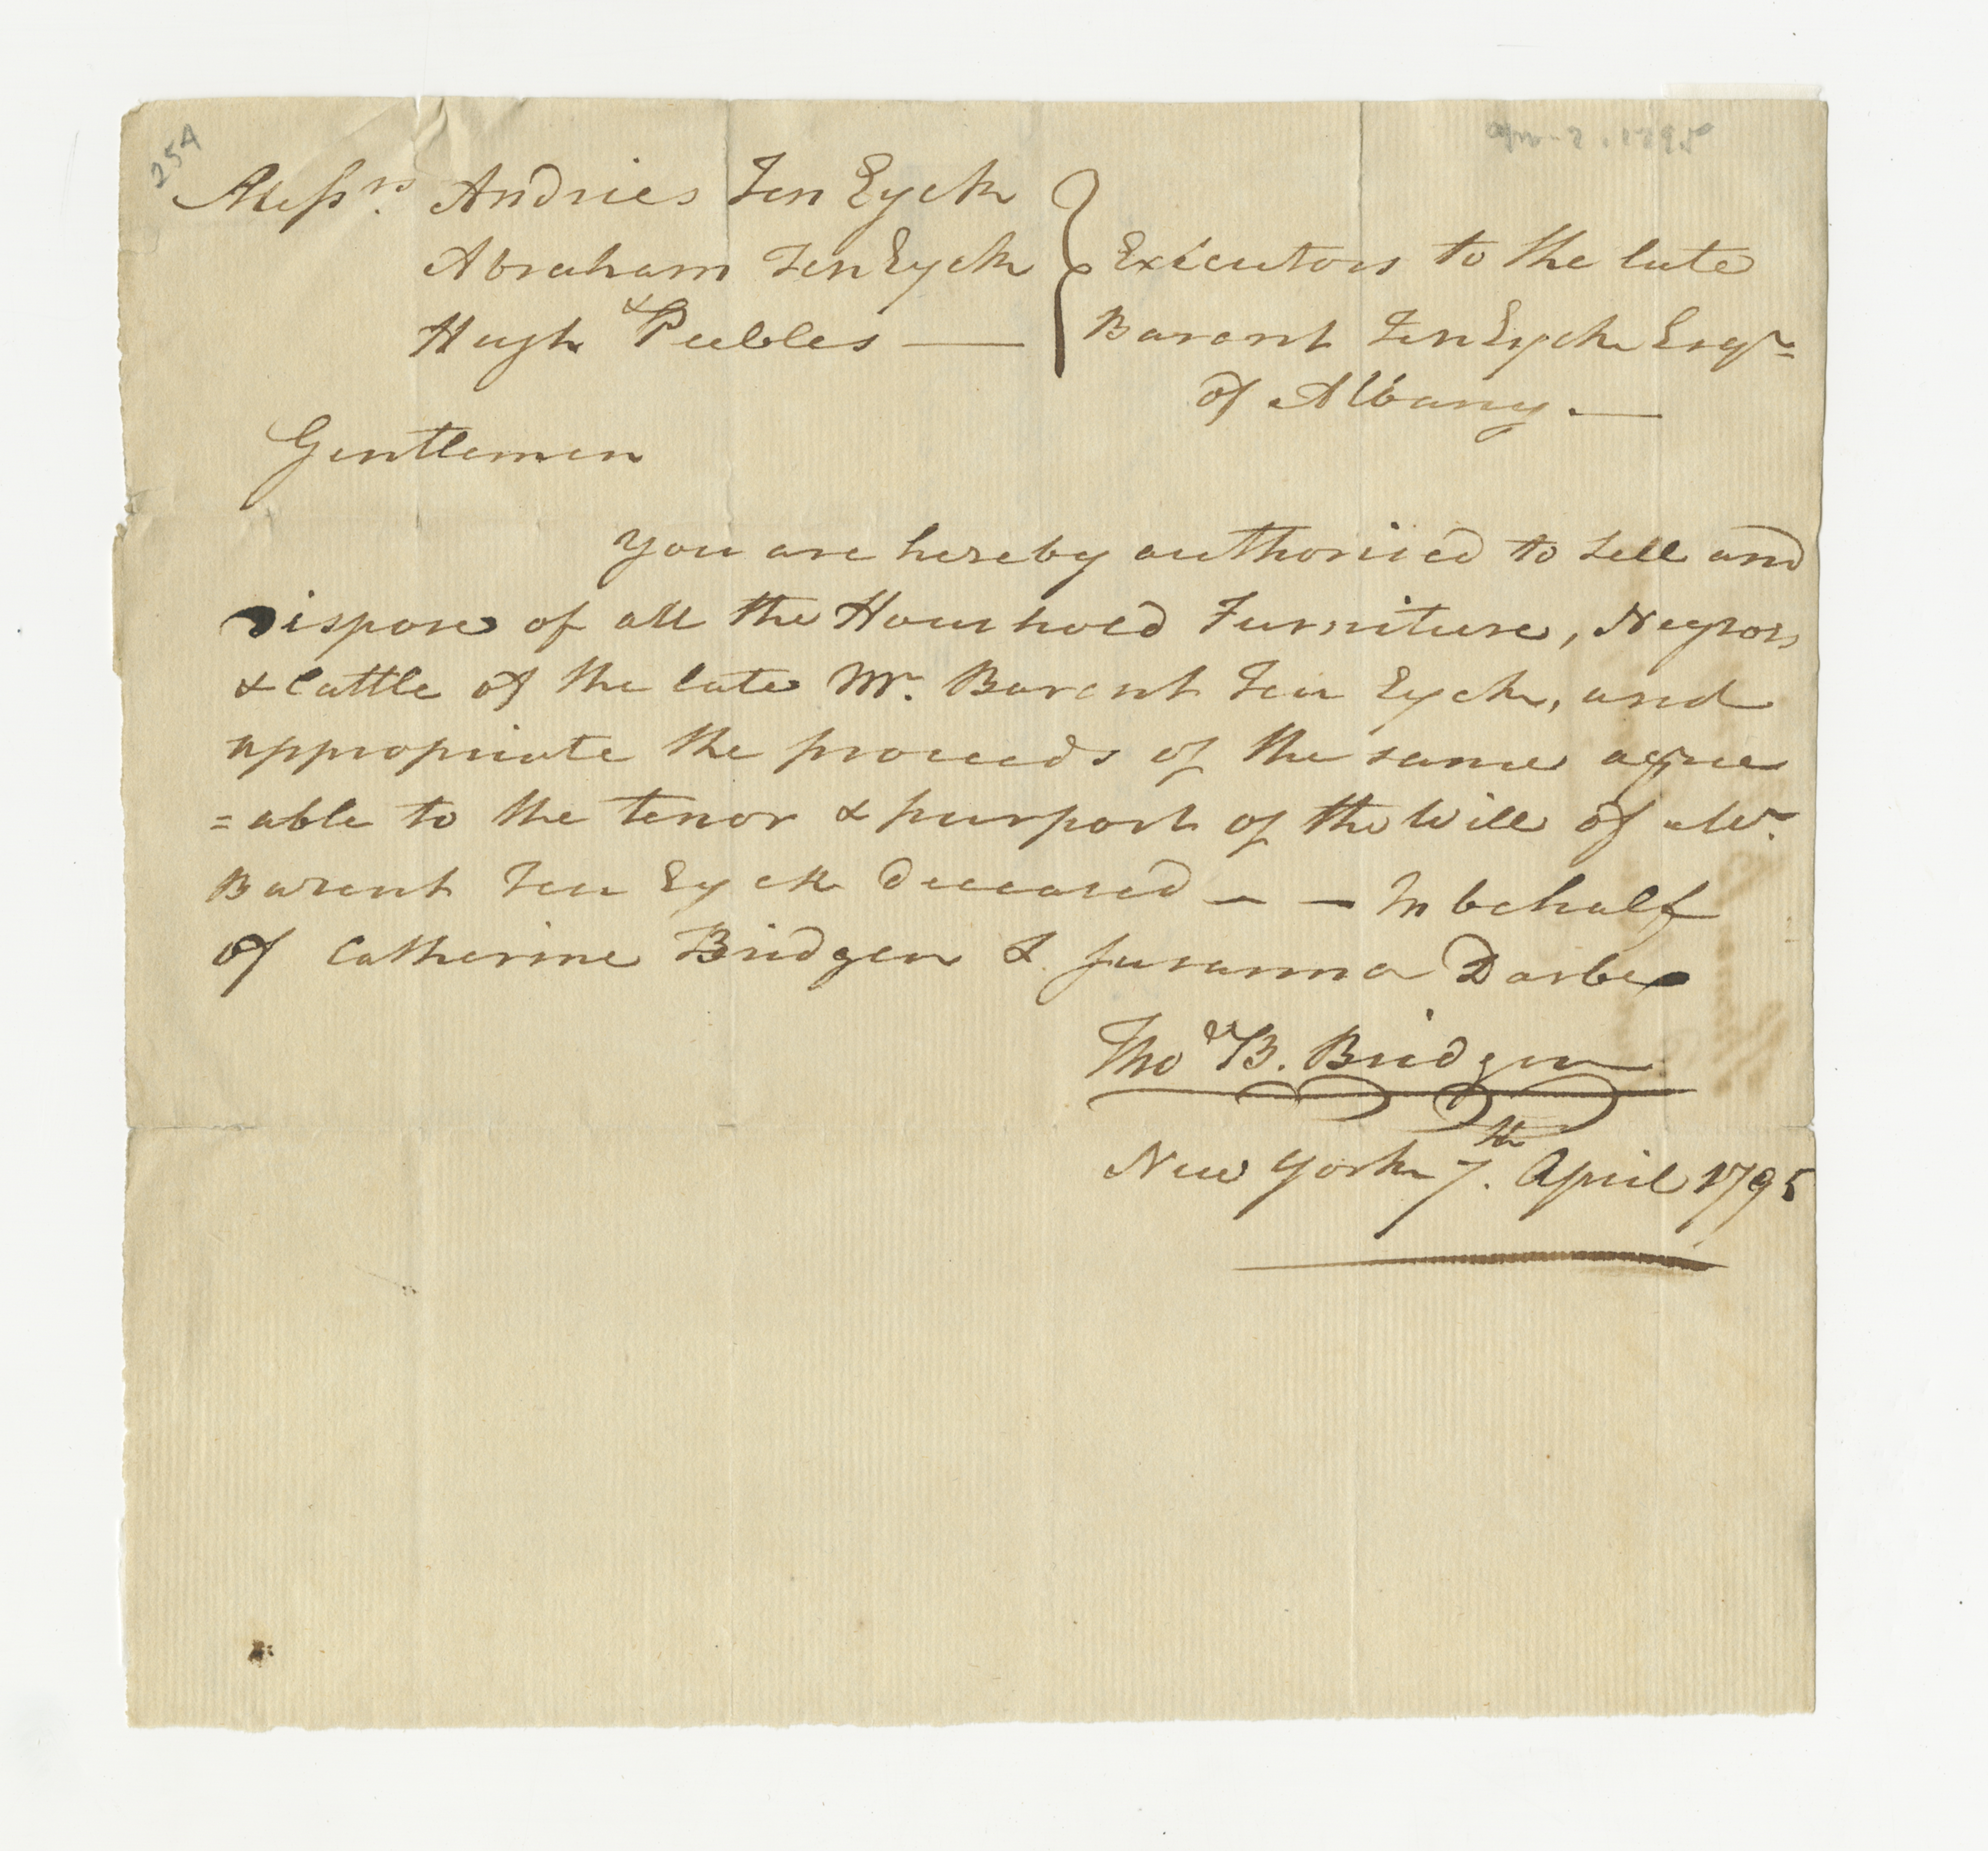 254
Messrs. Andries Ten Eyck
Abraham Ten Eyck
& Hugh Peebles —
Executors to the late
Barent Ten Eyck Esqr
of Albany. —
Gentlemen
You are hereby authorised to sell and
Dispose of all the Houshold Furniture, Negroes
& Cattle of the late Mr. Barent Ten Eyck, and
appropriate the proceeds of the same agree
=able to the tenor & purport of the Will of Mr.
Barent Ten Eyck deceased — — In behalf
of Catherine Bridgen & Susanna Darbe
Thos B. Bridgen
New York 7th. April 1795